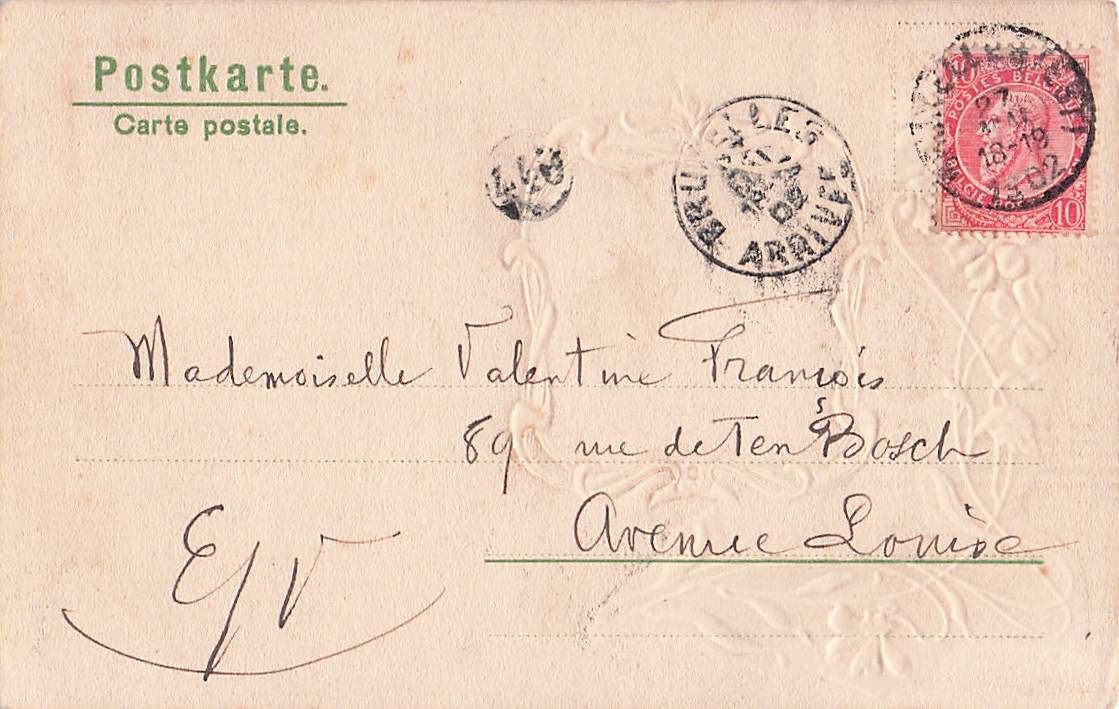 Postkarte.
Carte postale.
BRUXELLES
ARRIVEE
BRUXELLES (EST)
27
18-19
1902
POSTES BELGIQUE
BELGIE
10
Mademoiselle Valentine François
89 rue de Tens Bosch
Avenue Louise
E/V